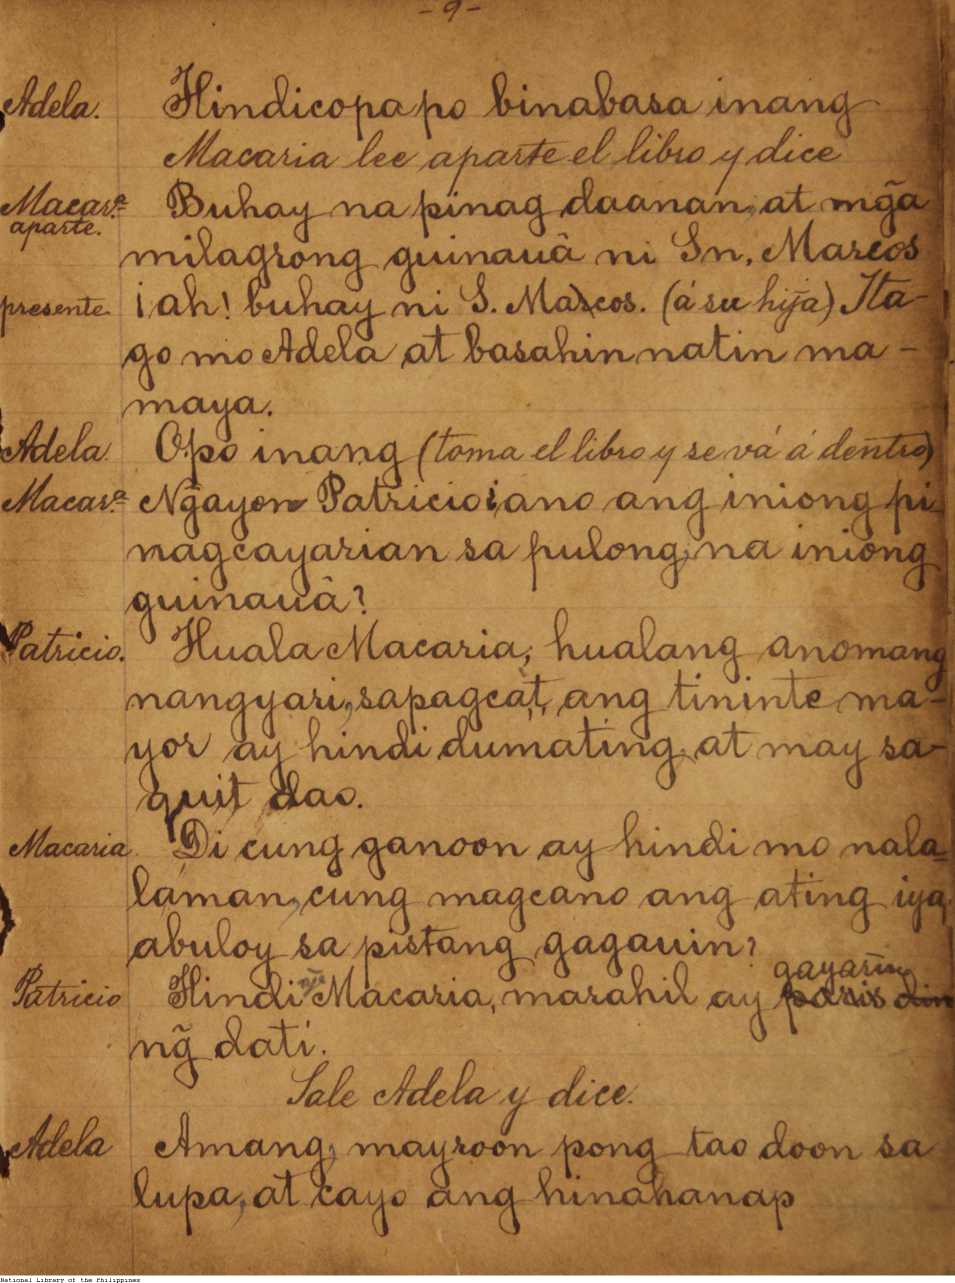 -9-
Adela. Hindicopa po binabasa inang
Macaria lee aparte el libro y dice
Macar.ª Buhay na pinag daanan, at mg̃a
aparte. milagrong guinauâ ni Sn, Marcos
presente. ¡ah! buhay ni S. Marcos. (á su hija) Ita-
go mo Adela at basahin natin ma-
maya.
Adela. Opo inang (toma el libro y se vá á dentro)
Macar.ª Ng̃ayon Patricio ¿ano ang iniong pi
nagcayarian sa pulong, na iniong
guinauâ?
Patricio. Huala Macaria, hualang anomang
nangyari, sapagcat, ang tininte ma-
yor ay hindi dumating, at may sa-
quit dao.
Macaria Di cung ganoon ay hindi mo nala-
laman, cung magcano ang ating iya
abuloy sa pistang gagauin?
Patricio Hindi Macaria, marahil ay paris din gayarin
ng̃ dati.
Sale Adela y dice.
Adela Amang, mayroon pong tao doon sa
lupa, at cayo ang hinahanap
National Library of the Philippines